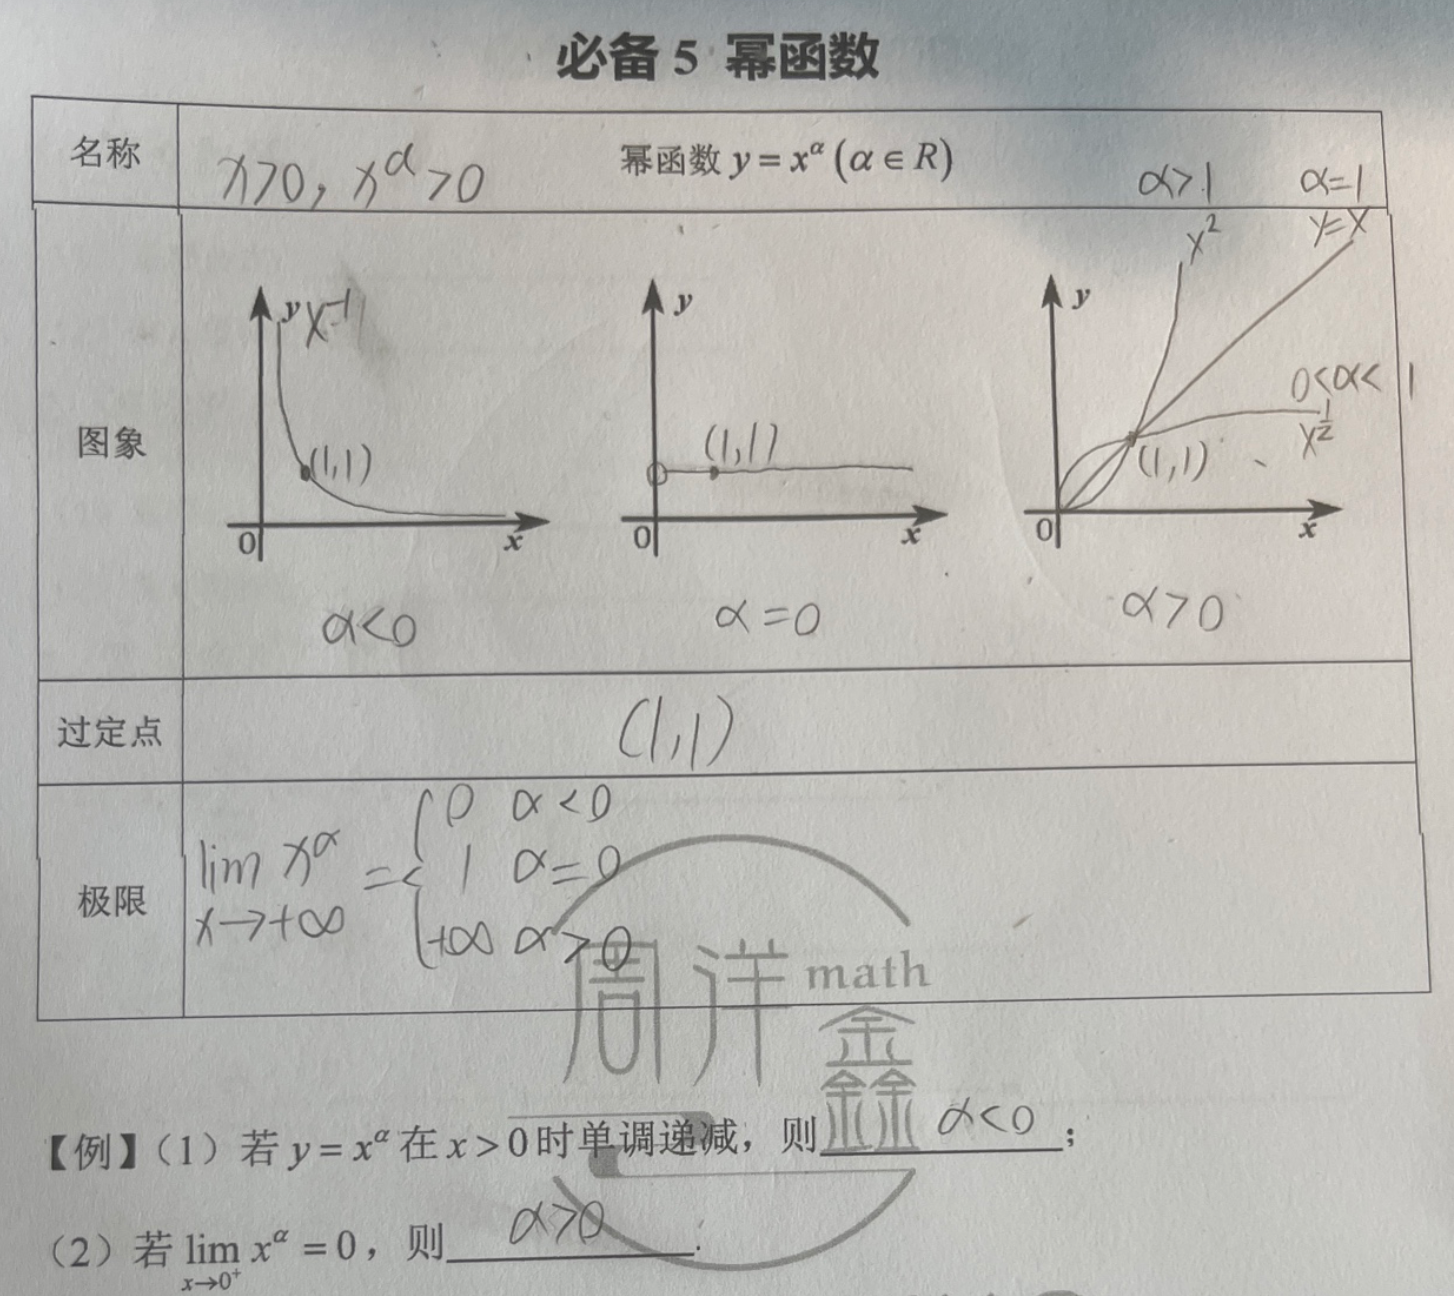 必备 5 幂函数
名称 x>0, x^α>0 幂函数 y = x^α (α ∈ R) α>1 α=1
图象
y x^-1 (1,1) 0 x α<0
y (1,1) 0 x α=0
y x² y=x 0<α<1 x^½ (1,1) 0 x α>0
过定点 (1,1)
极限 lim x→+∞ x^α = { 0 α<0
1 α=0
+∞ α>0
周洋 math
鑫
【例】（1）若 y = x^α 在 x > 0 时单调递减，则 α<0 ；
（2）若 lim x→0⁺ x^α = 0，则 α>0 .